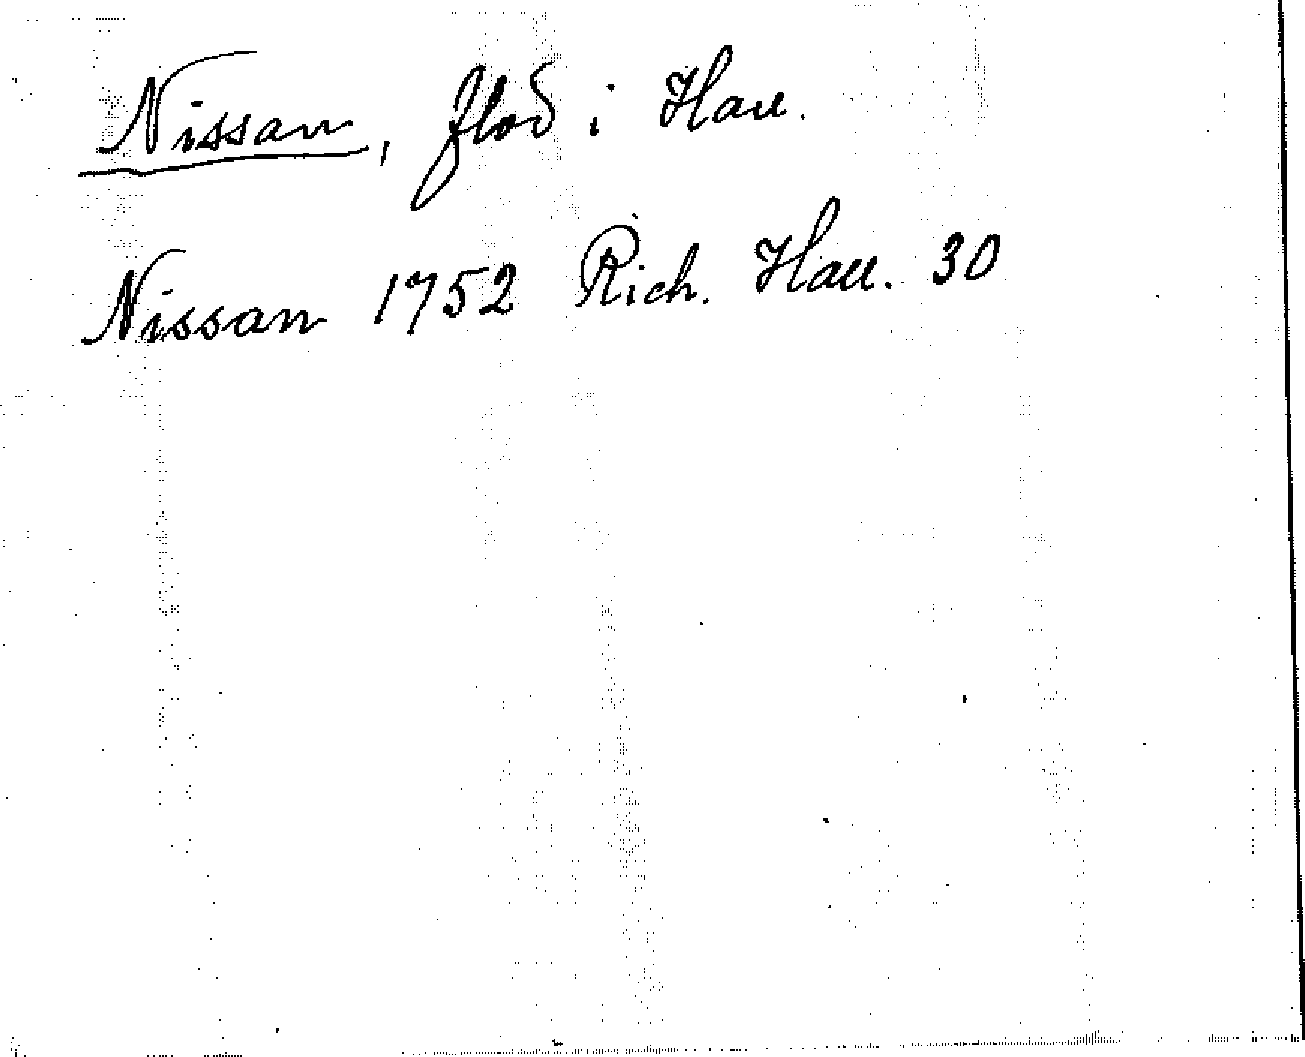 Nissan, flod i Hall.
Nissan 1752 Rich. Hall. 30